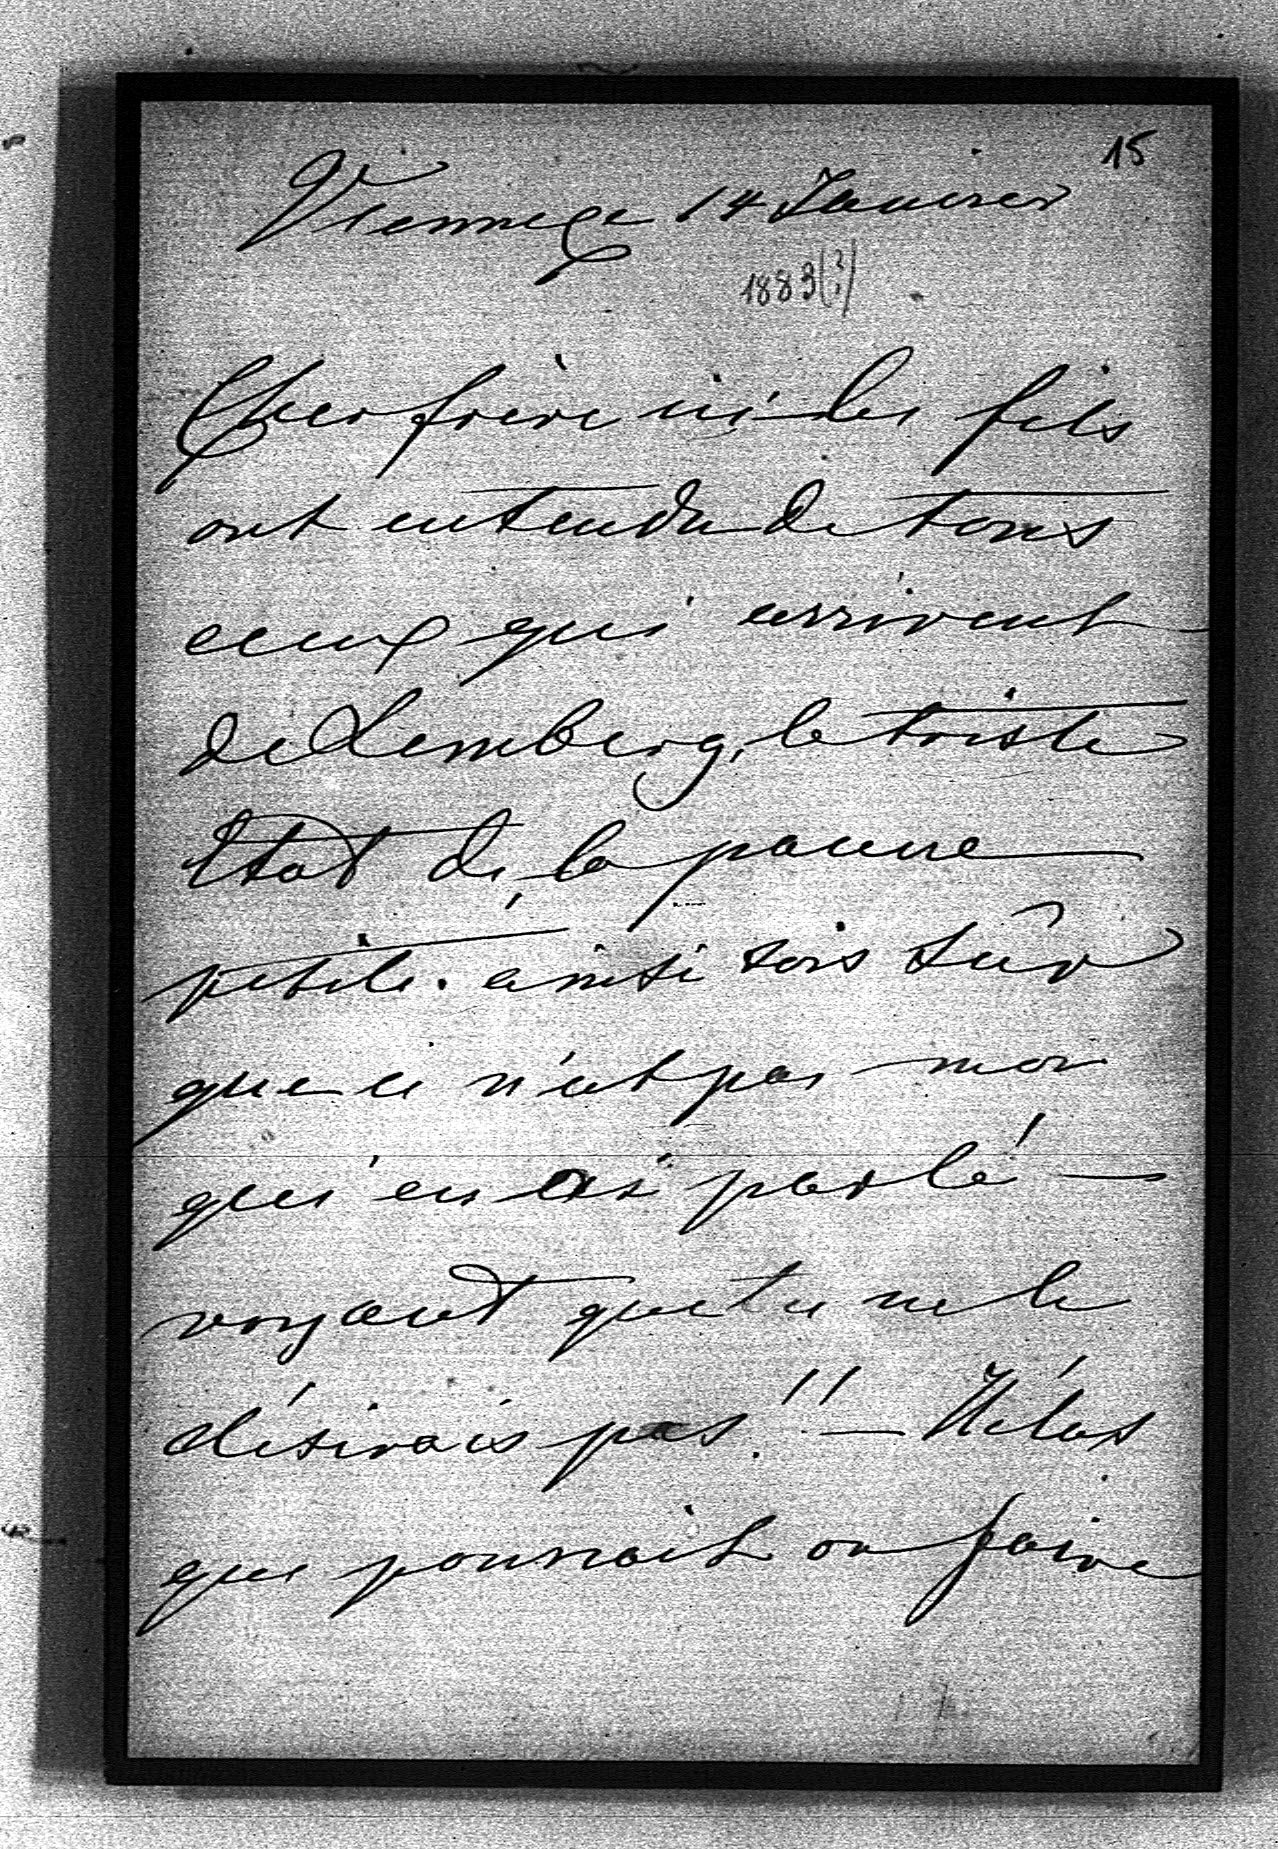 15
Vienne ce 14 Janvier
1883(?)
Cher frère ici les fils
ont entendu de tous
ceux qui arrivent
de Lemberg, le triste
état de la pauvre
petite. ainsi sois sûr
que ce n'est pas moi
qui en ai parlé —
voyant que tu ne le
désirais pas!! — Hélas
que pourrait on faire